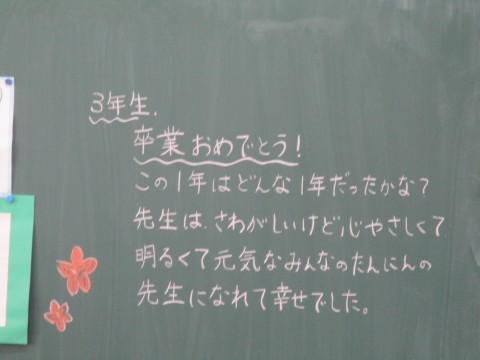 3年生.
卒業おめでとう!
この1年はどんな1年だったかな?
先生は、さわがしいけど心やさしくて
明るくて元気なみんなのたんにんの
先生になれて幸せでした。